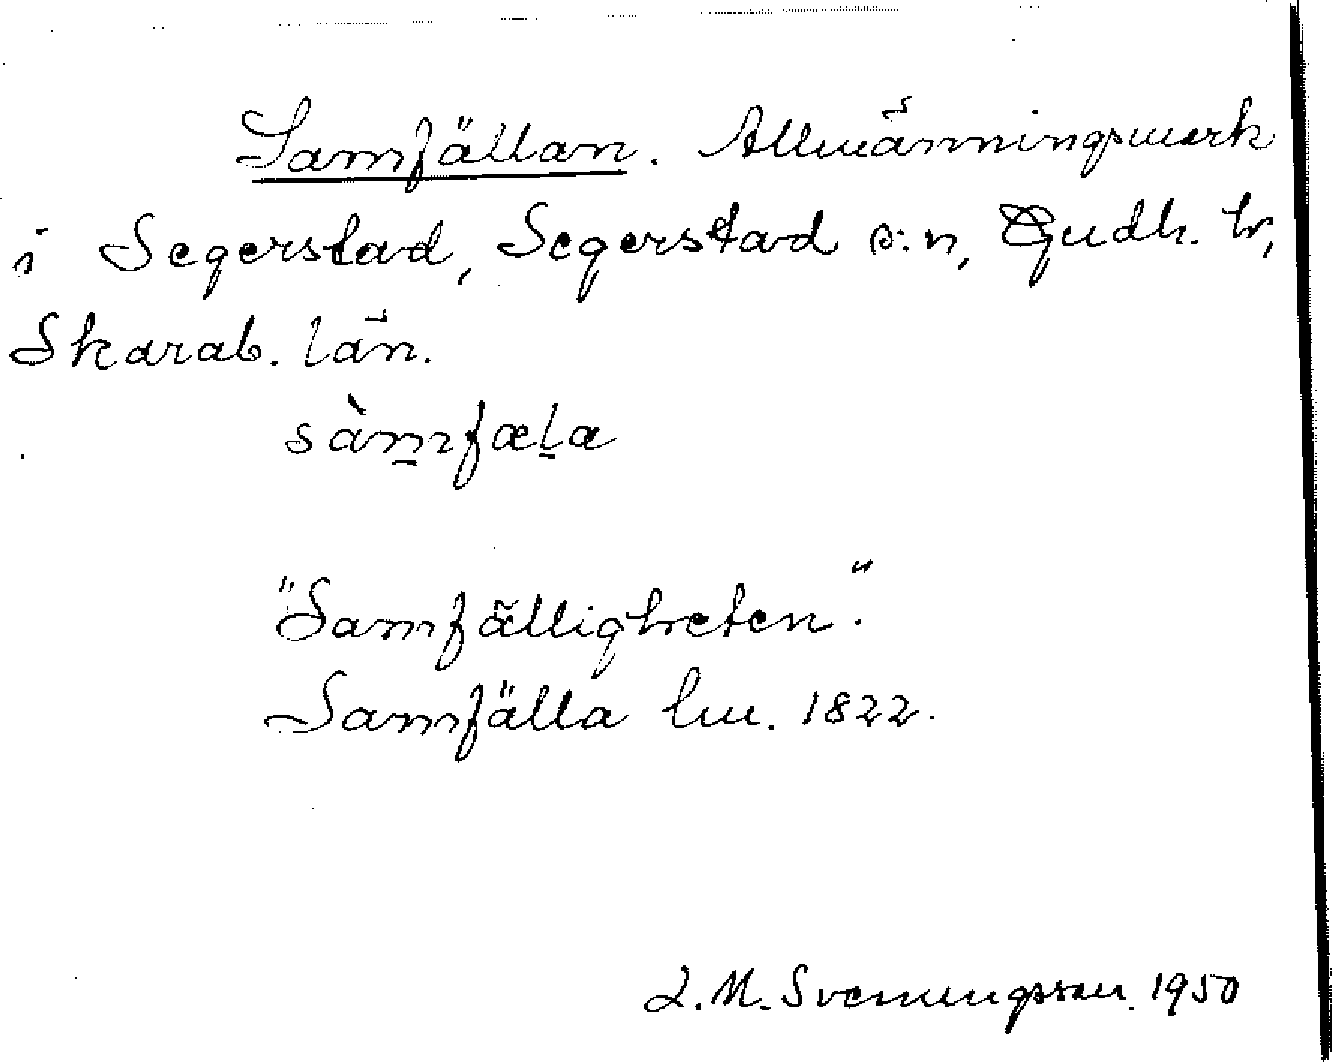 Samfällan. Allmänningsmark
i Segerstad, Segerstad s:n, Gudh. hr,
Skarab. län.
sàm̠fæl̠a
"Samfälligheten".
Samfälla lm. 1822.
L.M. Svenungsson. 1950